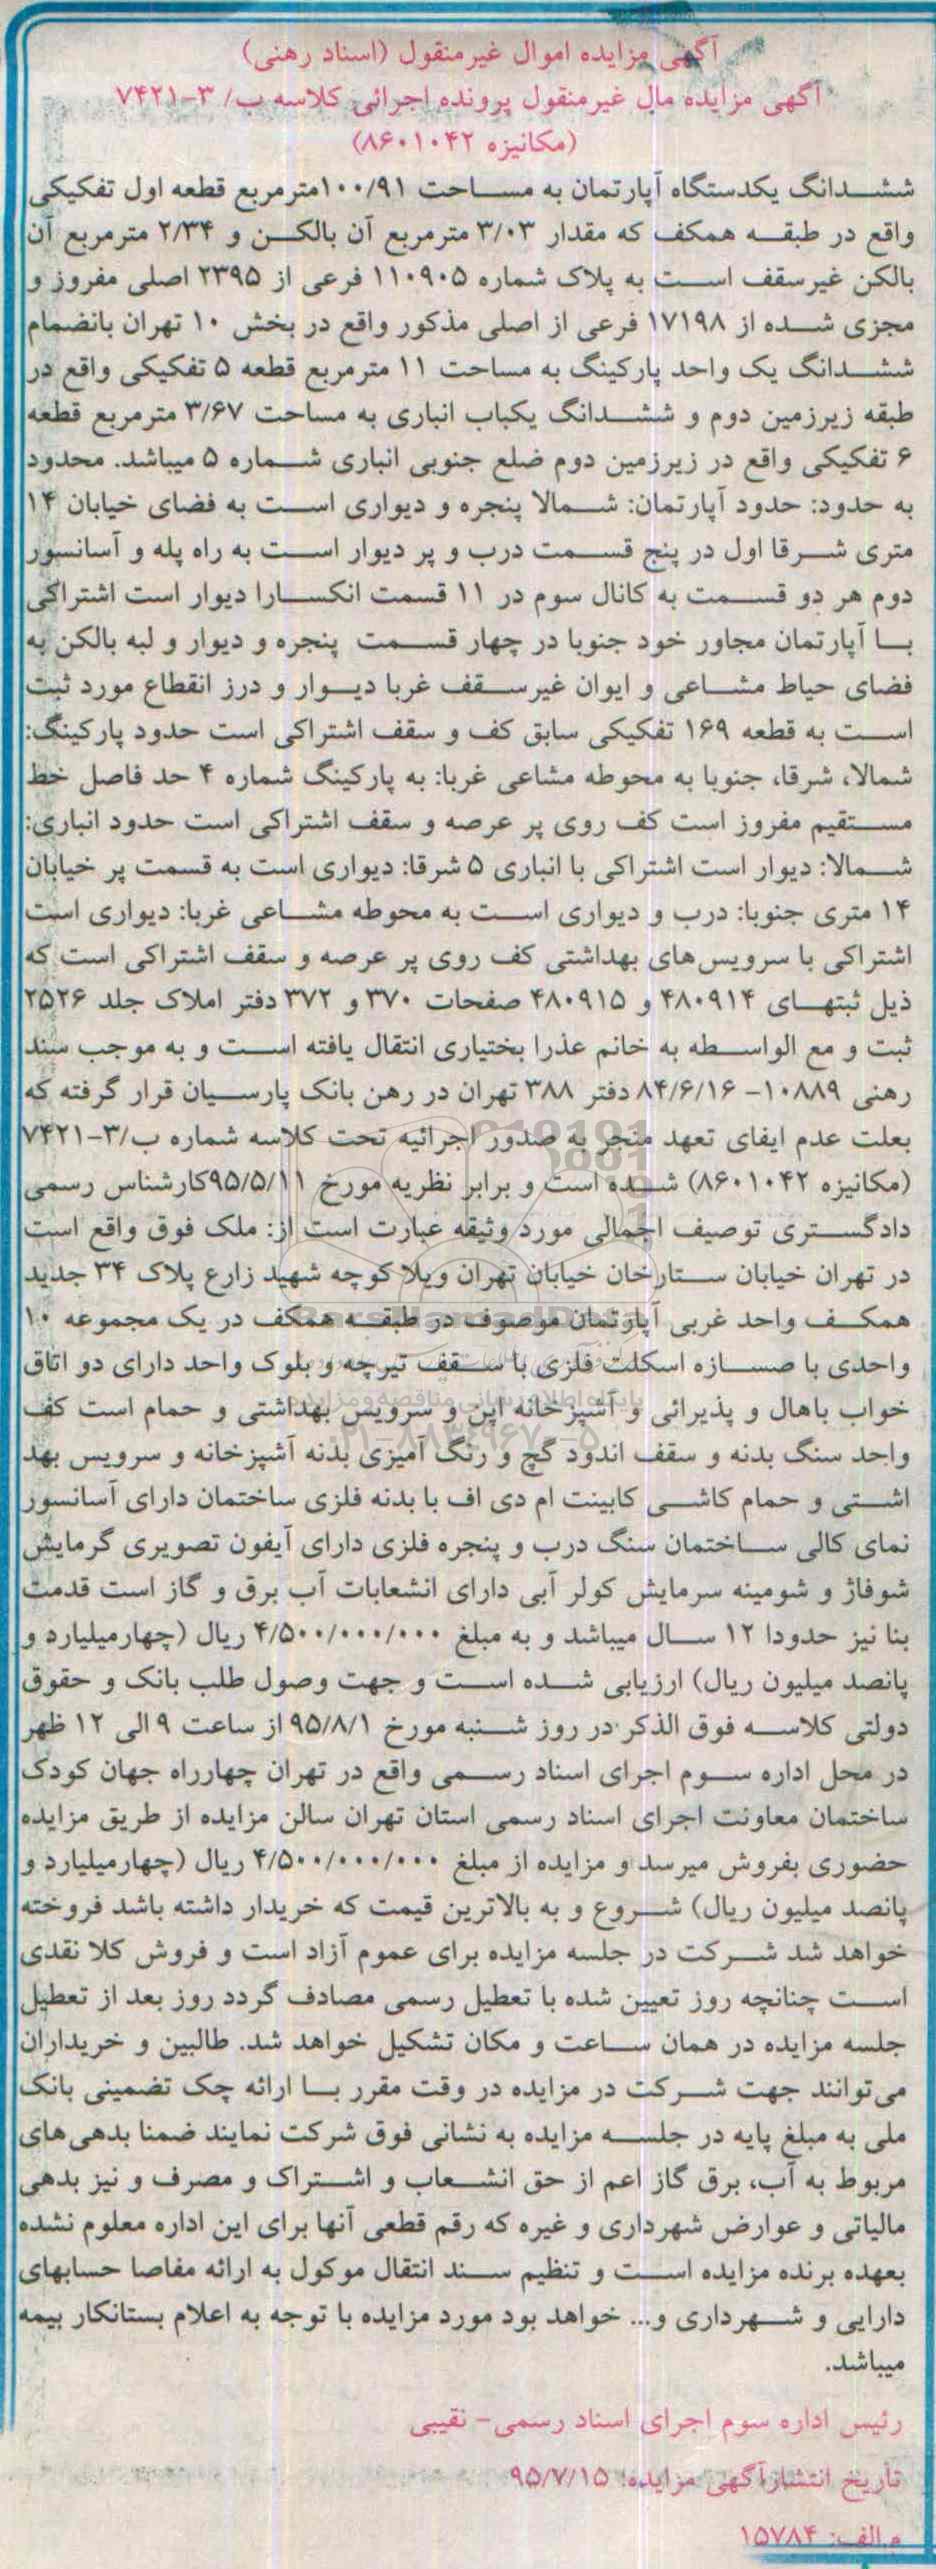 آگهی مزایده اموال غیرمنقول (اسناد رهنی)
آگهی مزایده مال غیرمنقول پرونده اجرائی کلاسه ب/ ۳-۷۴۲۱
(مکانیزه ۸۶۰۱۰۴۲)
ششدانگ یکدستگاه آپارتمان به مساحت ۱۰۰/۹۱مترمربع قطعه اول تفکیکی
واقع در طبقه همکف که مقدار ۳/۰۳ مترمربع آن بالکن و ۲/۳۴ مترمربع آن
بالکن غیرسقف است به پلاک شماره ۱۱۰۹۰۵ فرعی از ۲۳۹۵ اصلی مفروز و
مجزی شده از ۱۷۱۹۸ فرعی از اصلی مذکور واقع در بخش ۱۰ تهران بانضمام
ششدانگ یک واحد پارکینگ به مساحت ۱۱ مترمربع قطعه ۵ تفکیکی واقع در
طبقه زیرزمین دوم و ششدانگ یکباب انباری به مساحت ۳/۶۷ مترمربع قطعه
۶ تفکیکی واقع در زیرزمین دوم ضلع جنوبی انباری شماره ۵ میباشد. محدود
به حدود: حدود آپارتمان: شمالا پنجره و دیواری است به فضای خیابان ۱۴
متری شرقا اول در پنج قسمت درب و پر دیوار است به راه پله و آسانسور
دوم هر دو قسمت به کانال سوم در ۱۱ قسمت انکسارا دیوار است اشتراکی
با آپارتمان مجاور خود جنوبا در چهار قسمت پنجره و دیوار و لبه بالکن به
فضای حیاط مشاعی و ایوان غیرسقف غربا دیوار و درز انقطاع مورد ثبت
است به قطعه ۱۶۹ تفکیکی سابق کف و سقف اشتراکی است حدود پارکینگ:
شمالا، شرقا، جنوبا به محوطه مشاعی غربا: به پارکینگ شماره ۴ حد فاصل خط
مستقیم مفروز است کف روی پر عرصه و سقف اشتراکی است حدود انباری:
شمالا: دیوار است اشتراکی با انباری ۵ شرقا: دیواری است به قسمت پر خیابان
۱۴ متری جنوبا: درب و دیواری است به محوطه مشاعی غربا: دیواری است
اشتراکی با سرویس‌های بهداشتی کف روی پر عرصه و سقف اشتراکی است که
ذیل ثبتهای ۴۸۰۹۱۴ و ۴۸۰۹۱۵ صفحات ۳۷۰ و ۳۷۲ دفتر املاک جلد ۲۵۲۶
ثبت و مع الواسطه به خانم عذرا بختیاری انتقال یافته است و به موجب سند
رهنی ۱۰۸۸۹- ۸۴/۶/۱۶ دفتر ۳۸۸ تهران در رهن بانک پارسیان قرار گرفته که
بعلت عدم ایفای تعهد منجر به صدور اجرائیه تحت کلاسه شماره ب/۳-۷۴۲۱
(مکانیزه ۸۶۰۱۰۴۲) شده است و برابر نظریه مورخ ۹۵/۵/۱۱کارشناس رسمی
دادگستری توصیف اجمالی مورد وثیقه عبارت است از: ملک فوق واقع است
در تهران خیابان ستارخان خیابان تهران ویلا کوچه شهید زارع پلاک ۳۴ جدید
همکف واحد غربی آپارتمان موصوف در طبقه همکف در یک مجموعه ۱۰
واحدی با صسازه اسکلت فلزی با سقف تیرچه و بلوک واحد دارای دو اتاق
خواب باهال و پذیرائی و آشپزخانه اپن و سرویس بهداشتی و حمام است کف
واحد سنگ بدنه و سقف اندود گچ و رنگ آمیزی بدنه آشپزخانه و سرویس بهد
اشتی و حمام کاشی کابینت ام دی اف با بدنه فلزی ساختمان دارای آسانسور
نمای کالی ساختمان سنگ درب و پنجره فلزی دارای آیفون تصویری گرمایش
شوفاژ و شومینه سرمایش کولر آبی دارای انشعابات آب برق و گاز است قدمت
بنا نیز حدودا ۱۲ سال میباشد و به مبلغ ۴/۵۰۰/۰۰۰/۰۰۰ ریال (چهارمیلیارد و
پانصد میلیون ریال) ارزیابی شده است و جهت وصول طلب بانک و حقوق
دولتی کلاسه فوق الذکر در روز شنبه مورخ ۹۵/۸/۱ از ساعت ۹ الی ۱۲ ظهر
در محل اداره سوم اجرای اسناد رسمی واقع در تهران چهارراه جهان کودک
ساختمان معاونت اجرای اسناد رسمی استان تهران سالن مزایده از طریق مزایده
حضوری بفروش میرسد و مزایده از مبلغ ۴/۵۰۰/۰۰۰/۰۰۰ ریال (چهارمیلیارد و
پانصد میلیون ریال) شروع و به بالاترین قیمت که خریدار داشته باشد فروخته
خواهد شد شرکت در جلسه مزایده برای عموم آزاد است و فروش کلا نقدی
است چنانچه روز تعیین شده با تعطیل رسمی مصادف گردد روز بعد از تعطیل
جلسه مزایده در همان ساعت و مکان تشکیل خواهد شد. طالبین و خریداران
می‌توانند جهت شرکت در مزایده در وقت مقرر با ارائه چک تضمینی بانک
ملی به مبلغ پایه در جلسه مزایده به نشانی فوق شرکت نمایند ضمنا بدهی‌های
مربوط به آب، برق گاز اعم از حق انشعاب و اشتراک و مصرف و نیز بدهی
مالیاتی و عوارض شهرداری و غیره که رقم قطعی آنها برای این اداره معلوم نشده
بعهده برنده مزایده است و تنظیم سند انتقال موکول به ارائه مفاصا حسابهای
دارایی و شهرداری و... خواهد بود مورد مزایده با توجه به اعلام بستانکار بیمه
میباشد.
رئیس اداره سوم اجرای اسناد رسمی- نقیبی
تاریخ انتشارآگهی مزایده: ۹۵/۷/۱۵
م الف: ۱۵۷۸۴